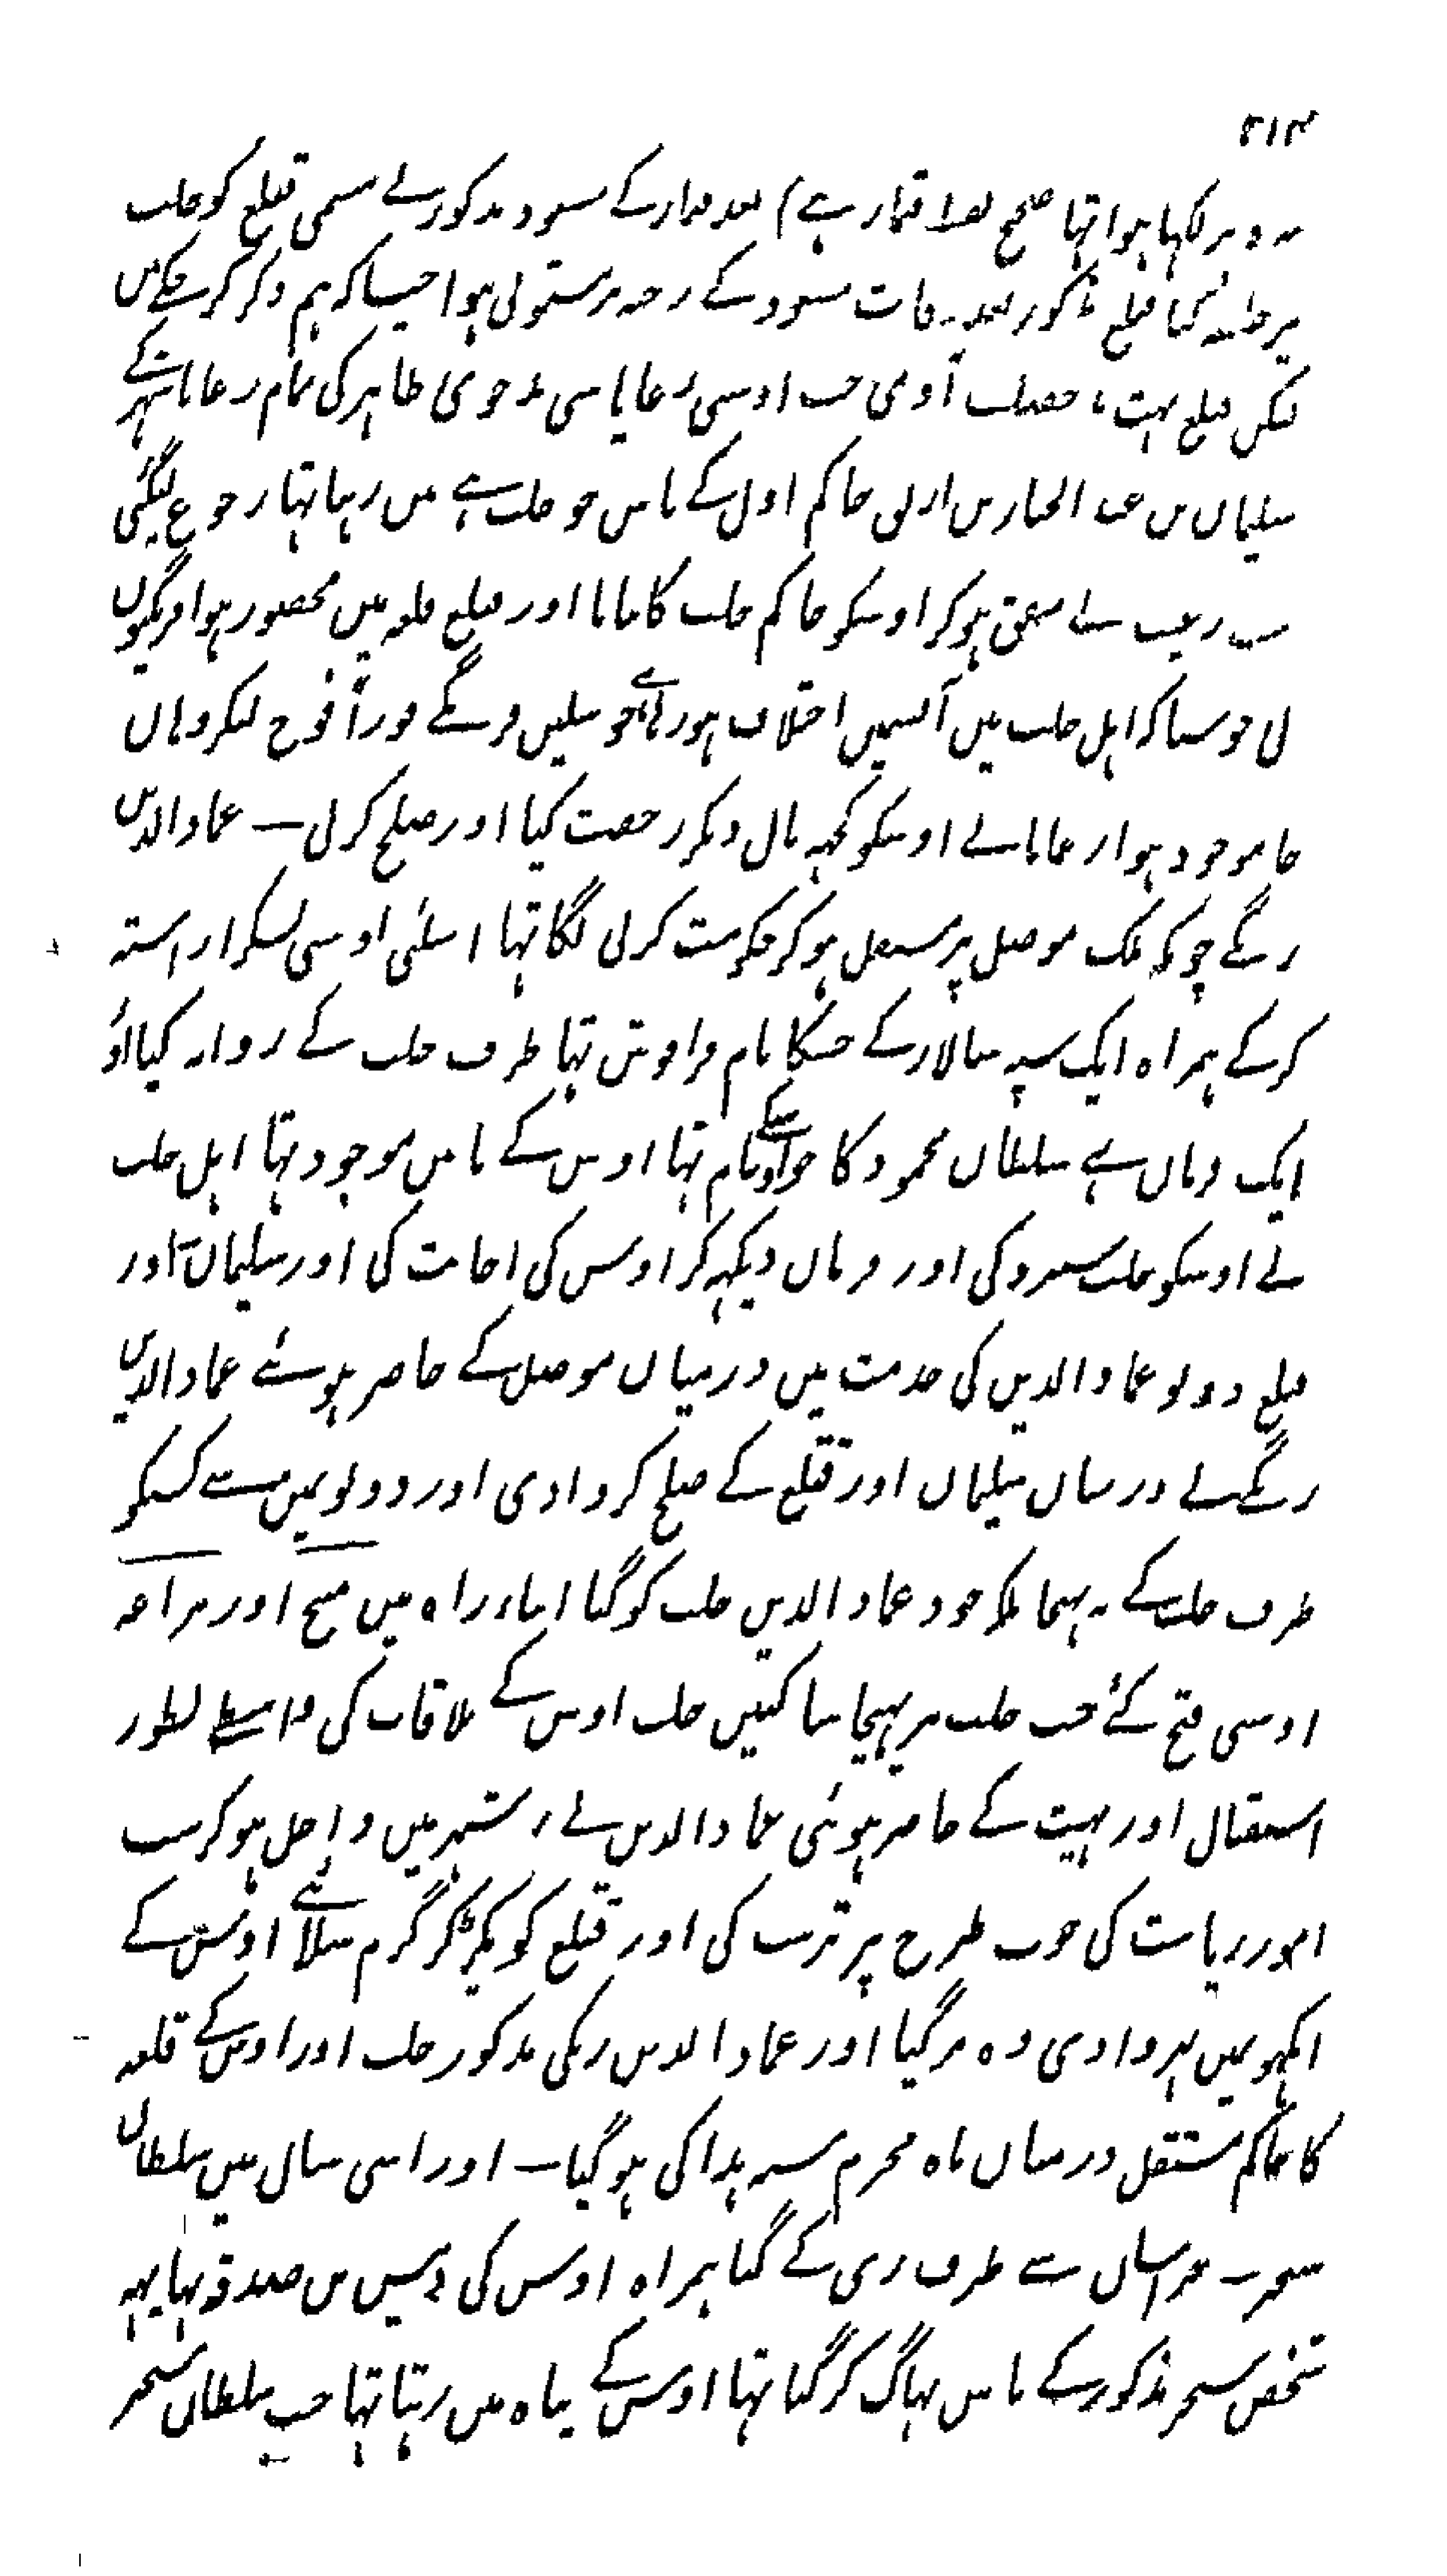 ۲۱۴
پر لکہا ہوا تہا صحیح لفظ قمار ہے) بعد قمار کے مسعود مذکور نے مسمی قتلغ کو حلب
پر خلیفہ کیا قتلغ مذکور بعد وفات مسعود کے رحبہ پر مستولی ہوا جیسا کہ ہم ذکر کر چکے ہیں
لیکن قتلغ بہت بد خصلت آدمی جب اوسی رعایا سی بد خوی ظاہر کی تمام رعایا شہر کے
سلیمان بن عبد الجبار بن ارتق حاکم اول کے پاس جو حلب ہے میں رہتا تہا رجوع لیگئی
سب رعیت نے متفق ہو کر اوسکو حاکم حلب کا مانا اور قتلغ قلعہ میں محصور ہوا فرنگیوں
نی جو سنا کہ اہل حلب میں آپسمیں اختلاف ہو رہا ہے جوسلین فرنگے فوراً فوج لیکر وہاں
جا موجود ہوا رعایا نے اوسکو کچہہ مال دیکر رخصت کیا اور صلح کر لی ــ عماد الدین
زنگے چونکہ ملک موصل پر مستقل ہو کر حکومت کرنی لگا تہا اسلئی اوسی لشکر اراستہ
کر کے ہمراہ ایک سپہ سالار کے جسکا نام قراقوش تہا طرف حلب کے روانہ کیا اور
ایک فرمان ہے سلطان محمود کا جو اوسکے نام تہا اوس کے پاس موجود تہا اہل حلب
نے اوسکو حلب سپرد کی اور فرمان دیکہہ کر اوس کی اطاعت کی اور سلیمان اور
قتلغ دونو عماد الدین کی خدمت میں درمیان موصل کے حاضر ہوئے عماد الدین
زنگے نے درمیان سلیمان اور قتلغ کے صلح کروادی اور دونومیں سے کسیکو
طرف حلب کے نہ بہیجا بلکہ خود عماد الدین حلب کو گیا اثناء راہ میں منبج اور بزاعہ
اوسی فتح کئے جب حلب پر پہنچا ساکنین حلب اوس کے ملاقات کی واسطے بطور
استقبال اور تہنیت کے حاضر ہوئی عماد الدین نے شہر میں داخل ہو کر سب
امور ریاست کی خوب طرح پر ترتیب کی اور قتلغ کو پکڑ کر گرم سلائے اوس کے
انکہو نمیں پہروادی وہ مر گیا اور عماد الدین زنگی مذکور حلب اور اوس کے قلعہ
کا حاکم مستقل درمیان ماہ محرم سنہ ہذا کی ہو گیا ــ اور اسی سال میں سلطان
سنجر ــ خراسان سے طرف ری کے گیا ہمراہ اوس کی دبیس بن صدقہ تہا یہہ
شخص سنجر مذکور کے پاس بہاگ کر گیا تہا اوس کے پناہ میں رہتا تہا جب سلطان سنجر